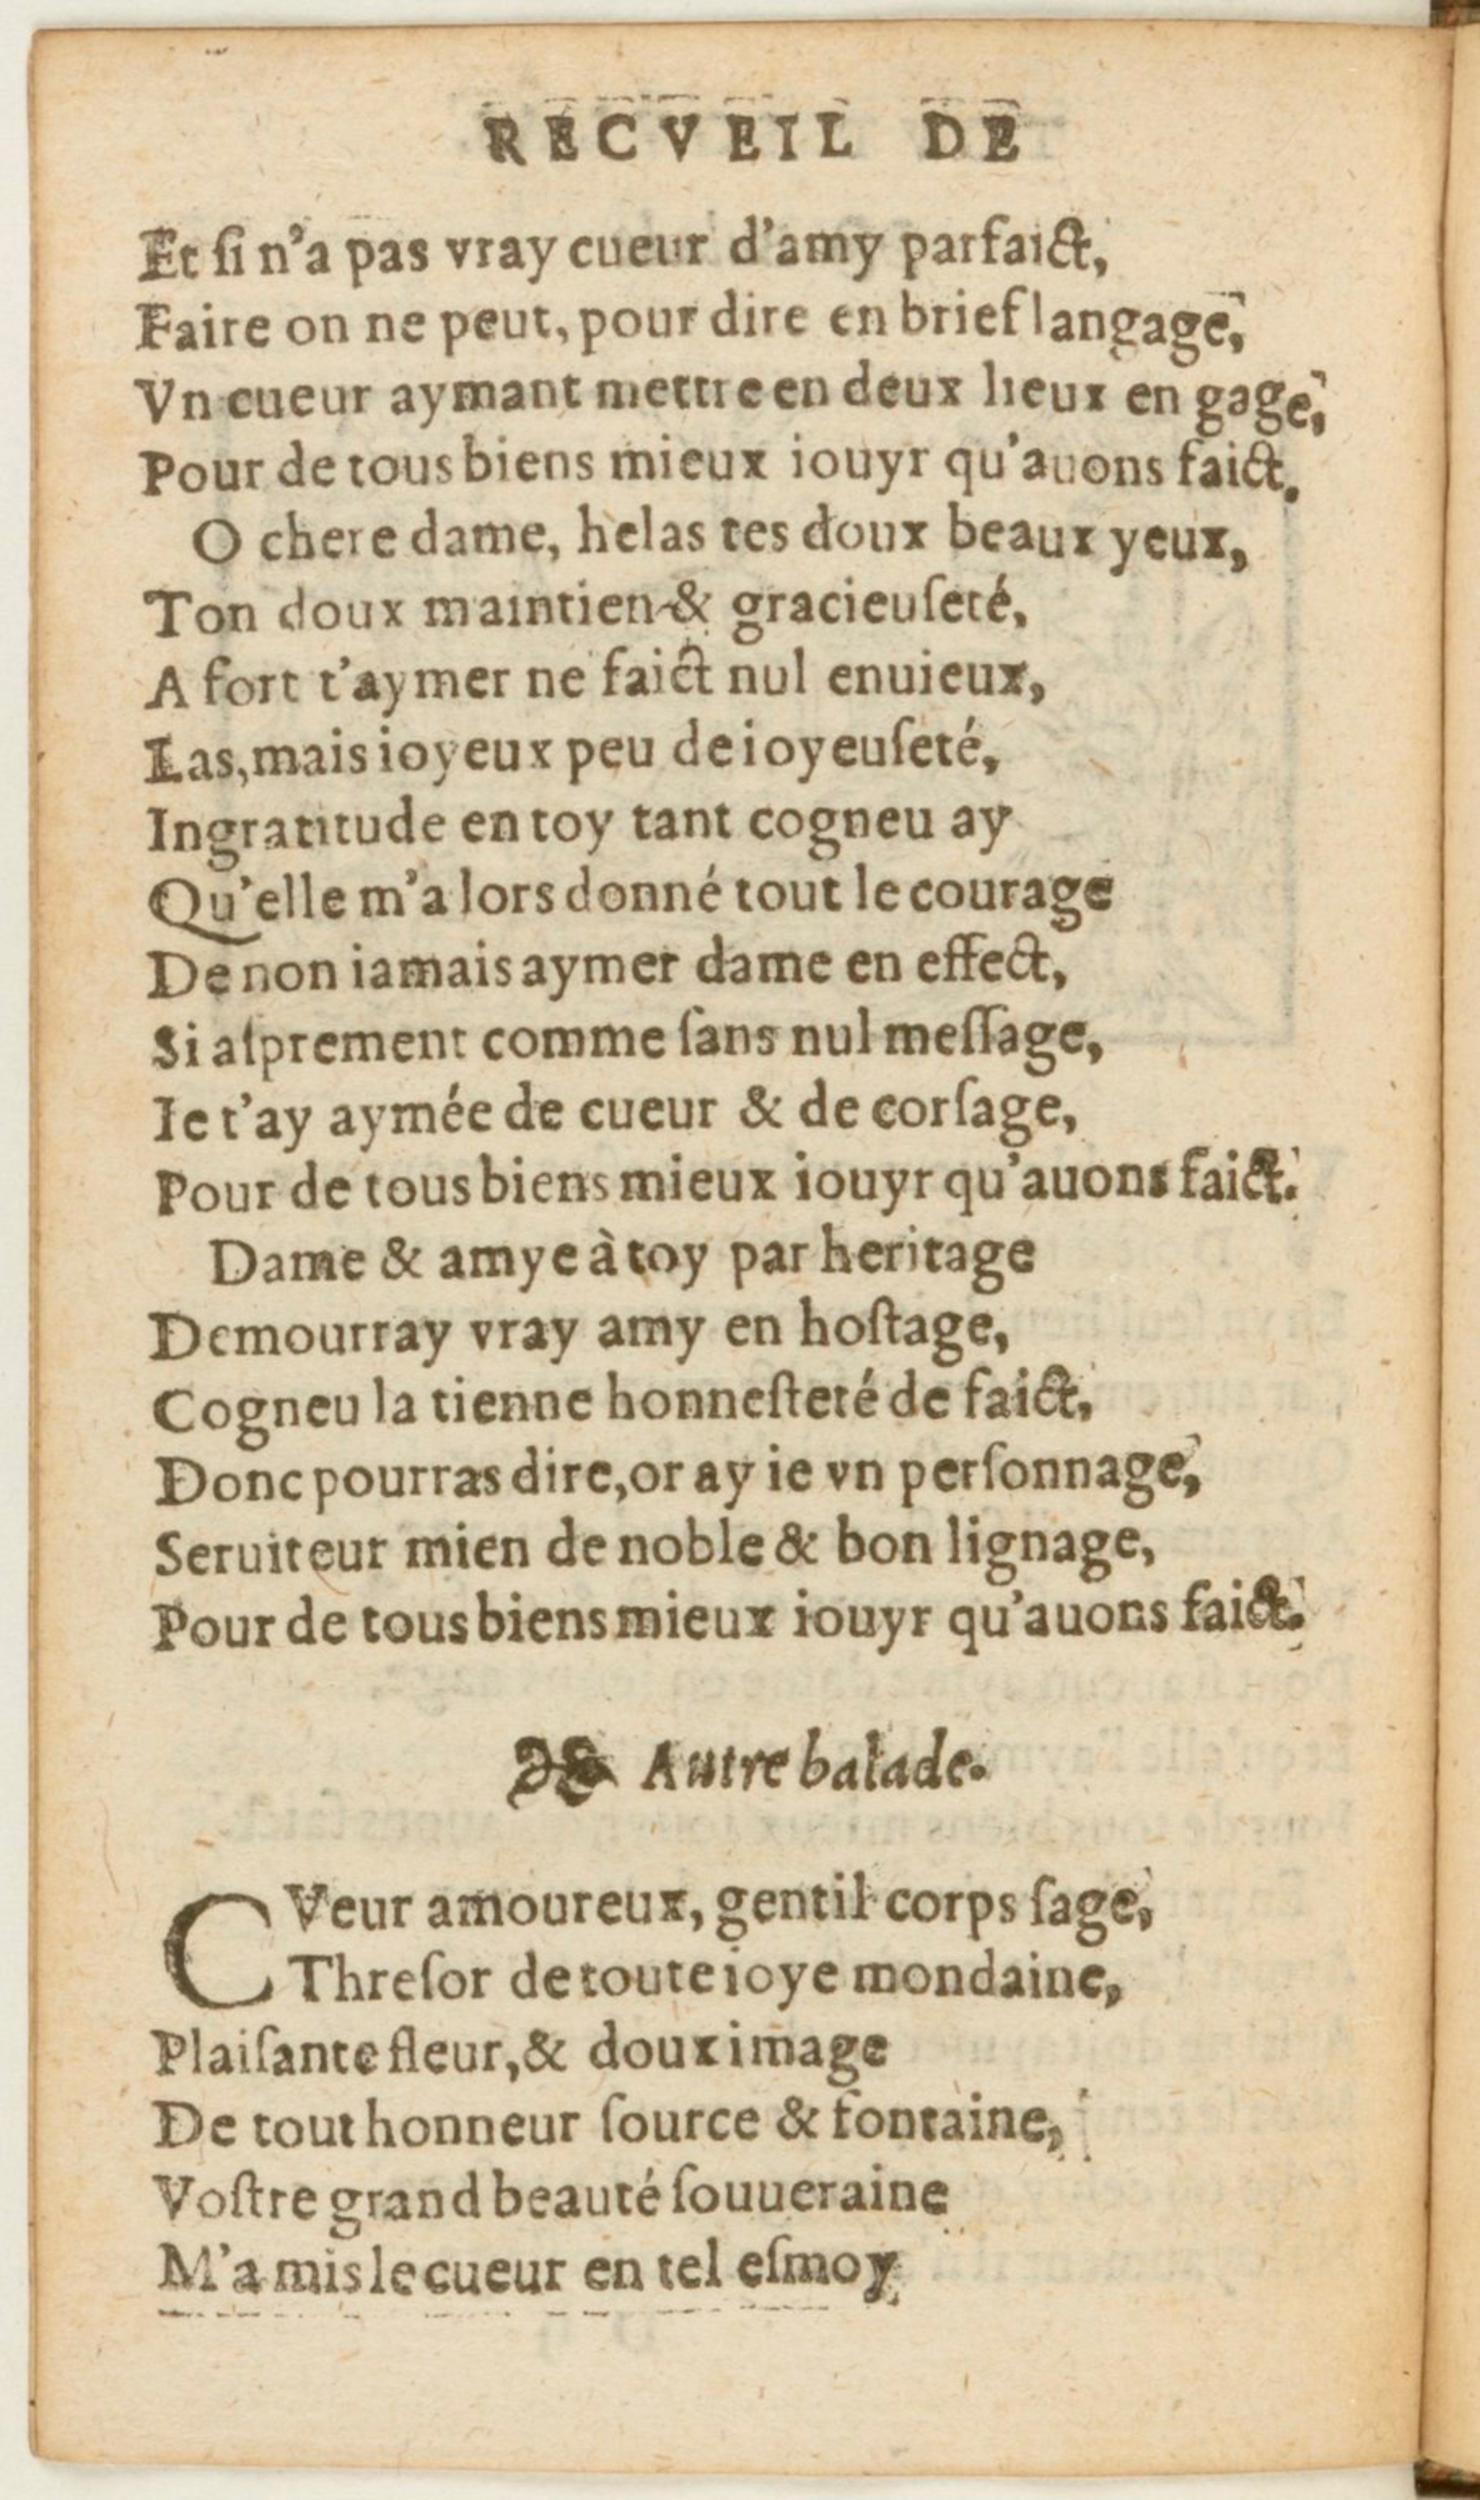 RECVEIL DE
Et ſi n'a pas vray cueur d'amy parfaict,
Faire on ne peut, pour dire en brief langage,
Vn cueur aymant mettre en deux lieux en gage,
Pour de tous biens mieux iouyr qu'auons faict.
O chere dame, helas tes doux beaux yeux,
Ton doux maintien & gracieuſeté,
A fort t'aymer ne faict nul enuieux,
Las, mais ioyeux peu de ioyeuſeté,
Ingratitude en toy tant cogneu ay
Qu'elle m'a lors donné tout le courage
De non iamais aymer dame en effect,
Si aſprement comme ſans nul meſſage,
Ie t'ay aymée de cueur & de corſage,
Pour de tous biens mieux iouyr qu'auons faict.
Dame & amye à toy par heritage
Demourray vray amy en hoſtage,
Cogneu la tienne honneſteté de faict,
Donc pourras dire, or ay ie vn perſonnage,
Seruiteur mien de noble & bon lignage,
Pour de tous biens mieux iouyr qu'auons faict.
Autre balade.
CVeur amoureux, gentil corps ſage,
Threſor de toute ioye mondaine,
Plaiſante fleur, & doux image
De tout honneur ſource & fontaine,
Voſtre grand beauté ſouueraine
M'a mis le cueur en tel eſmoy